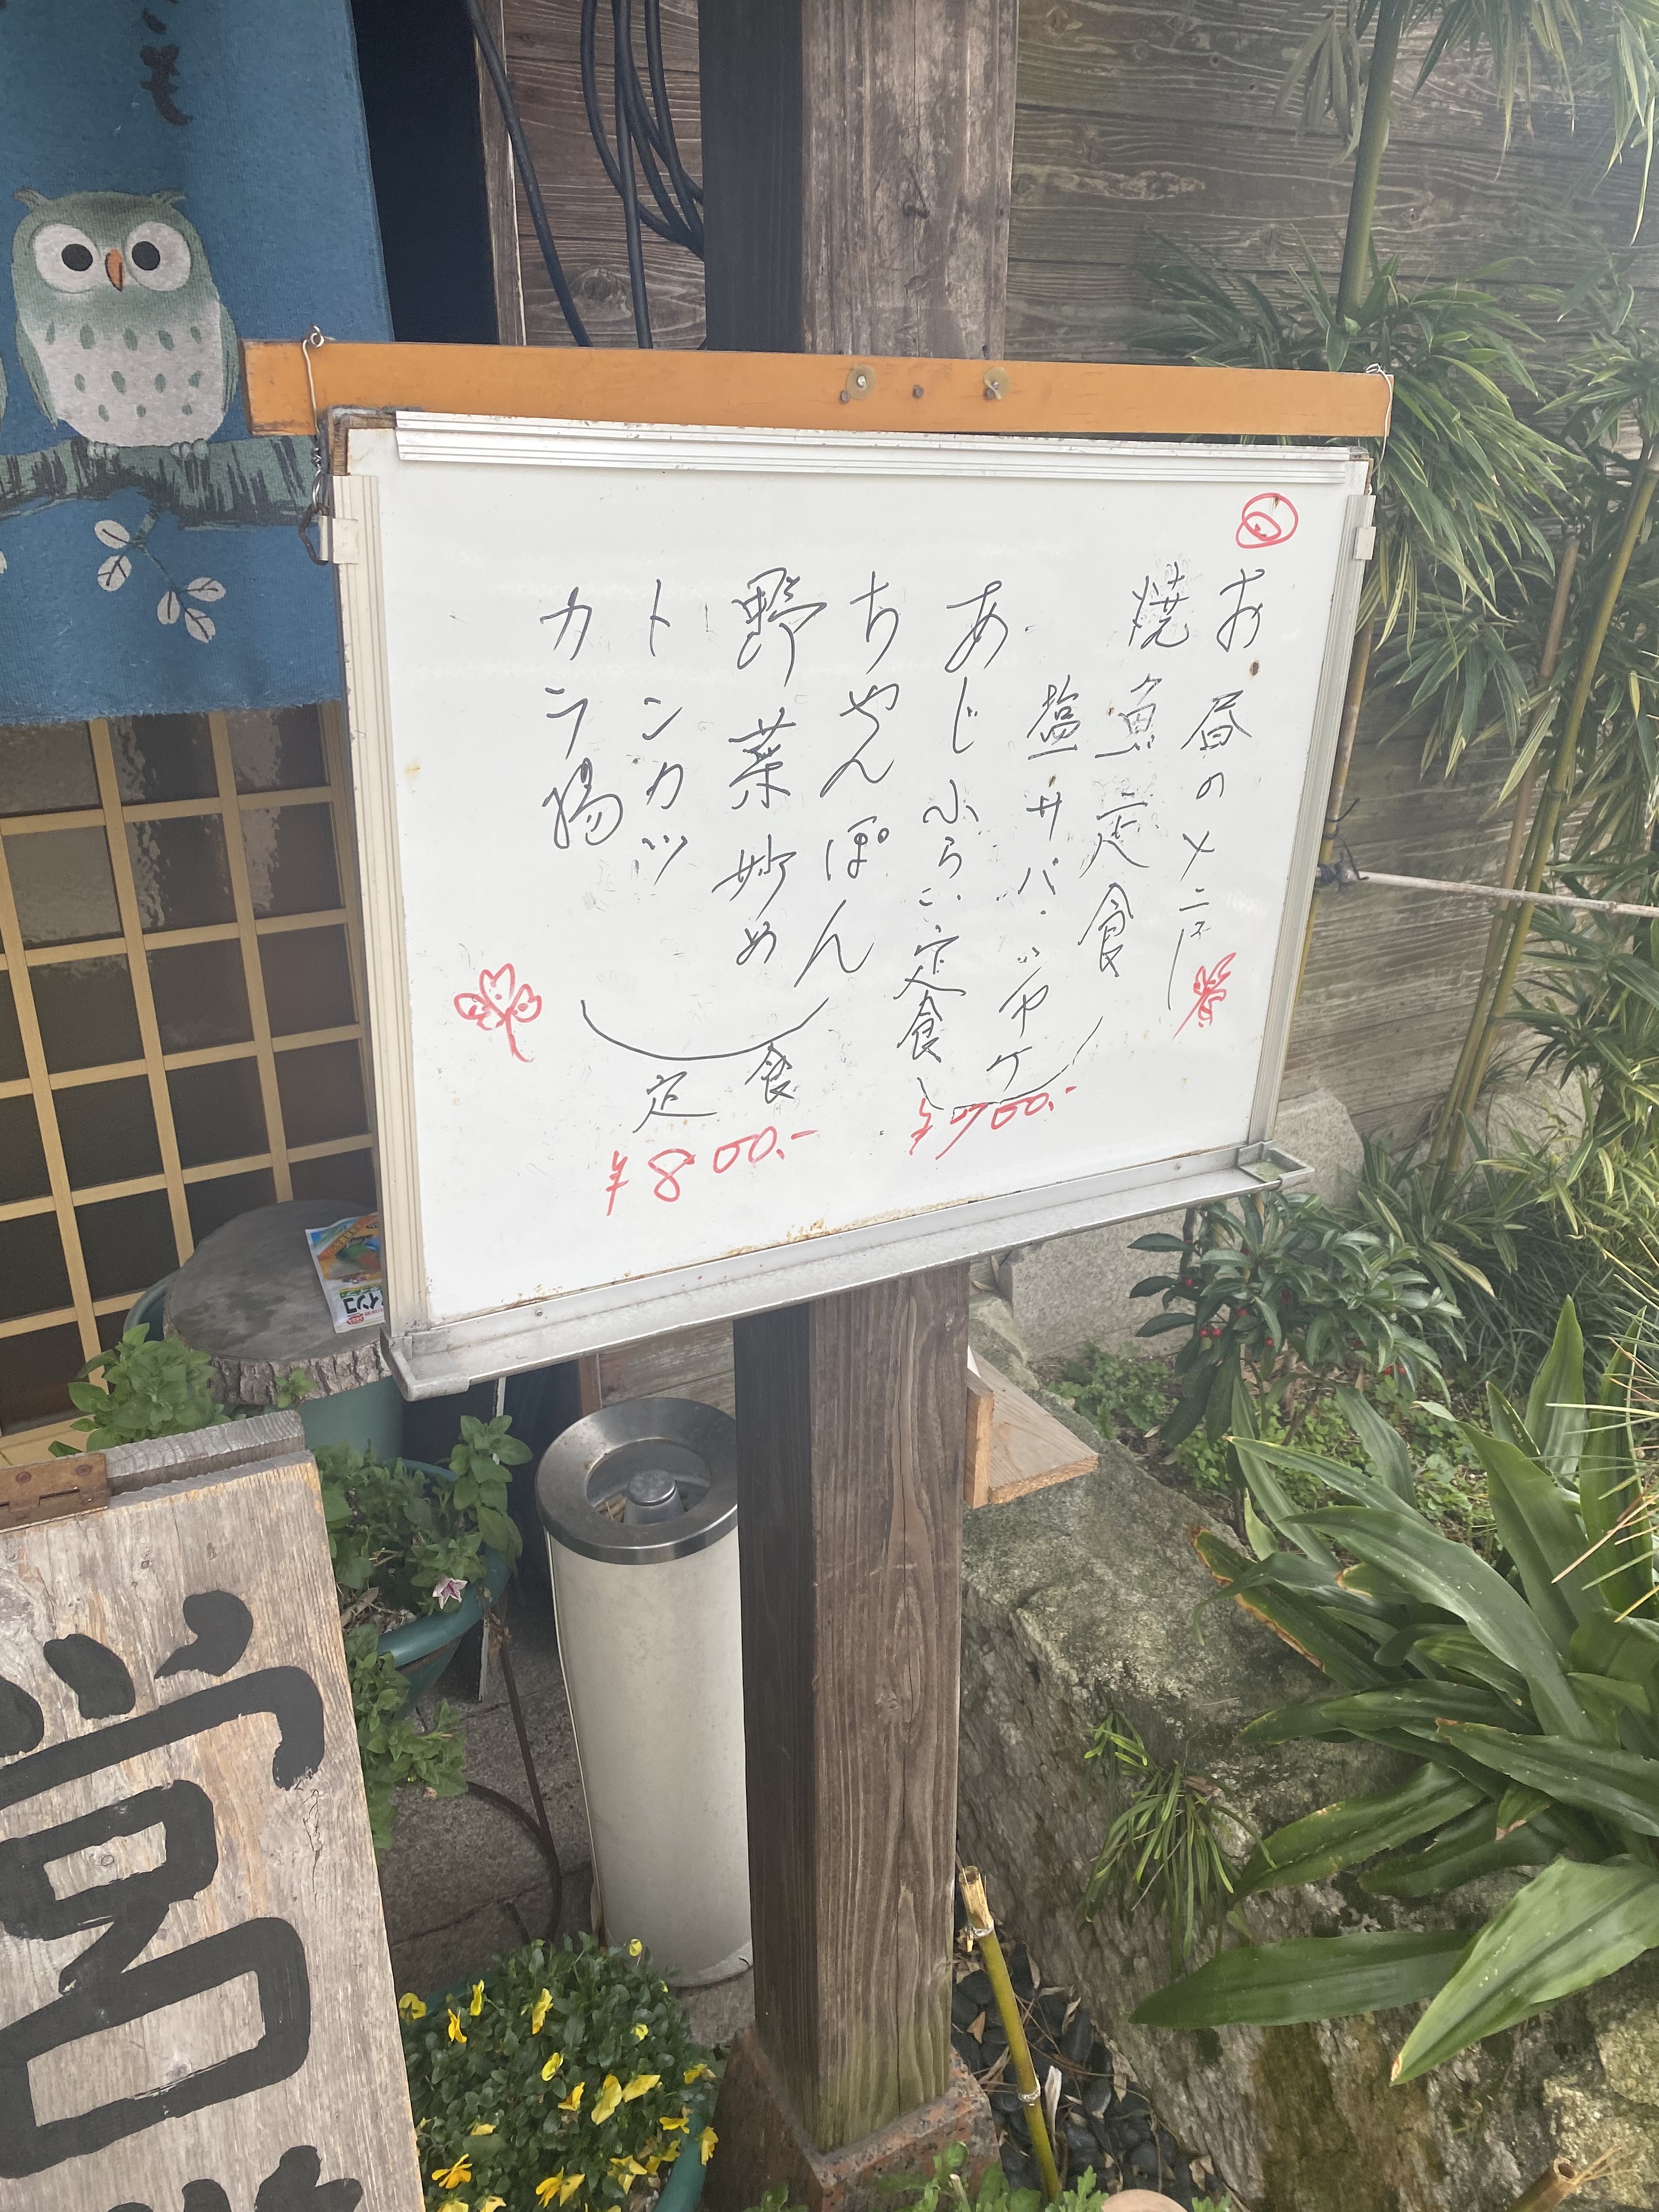 お昼のメニュー
焼魚定食
塩サバ
あじふらい定食
¥700.-
ちゃんぽん
野菜炒め
トンカツ
カラ揚
定食
¥800.-
営